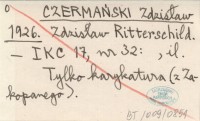 0
CZERMAŃSKI Zdzisław
1926. Zdzisław Ritterschild.
— IKC 17, nr 32: , il.
Tylko karykatura (z Za-
kopanego).
BJ /009/0851